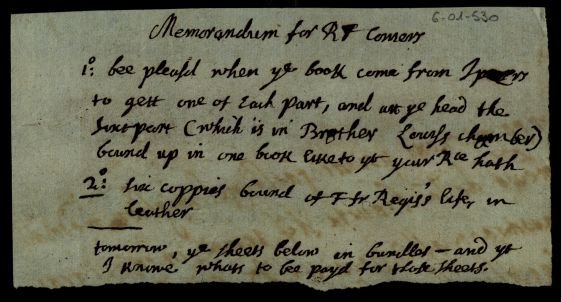 6-01-530
Memorandum for Rr Coners
1o: bee pleasd when ye book come from Ipers
to gett one of each part, and att ye head the
first part (which is in Brother Lewiss chamber)
bound up in one book like to yt your Rce hath
2o: six coppies bound of F fr Regis's life, in
leather
tomorrow, ye sheets below in bundles - and yt
I knowe whats to bee payd for those sheets.